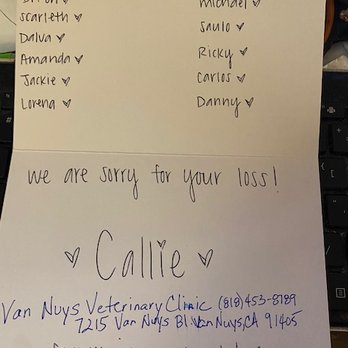 michael ♥
Scarleth ♥
Saulo ♥
Dalva ♥
Ricky ♥
Amanda ♥
Carlos ♥
Jackie ♥
Danny ♥
Lorena ♥
we are sorry for your loss!
♥ Callie ♥
Van Nuys Veterinary Clinic (818) 453-8789
7215 Van Nuys Bl. Van Nuys, CA 91405